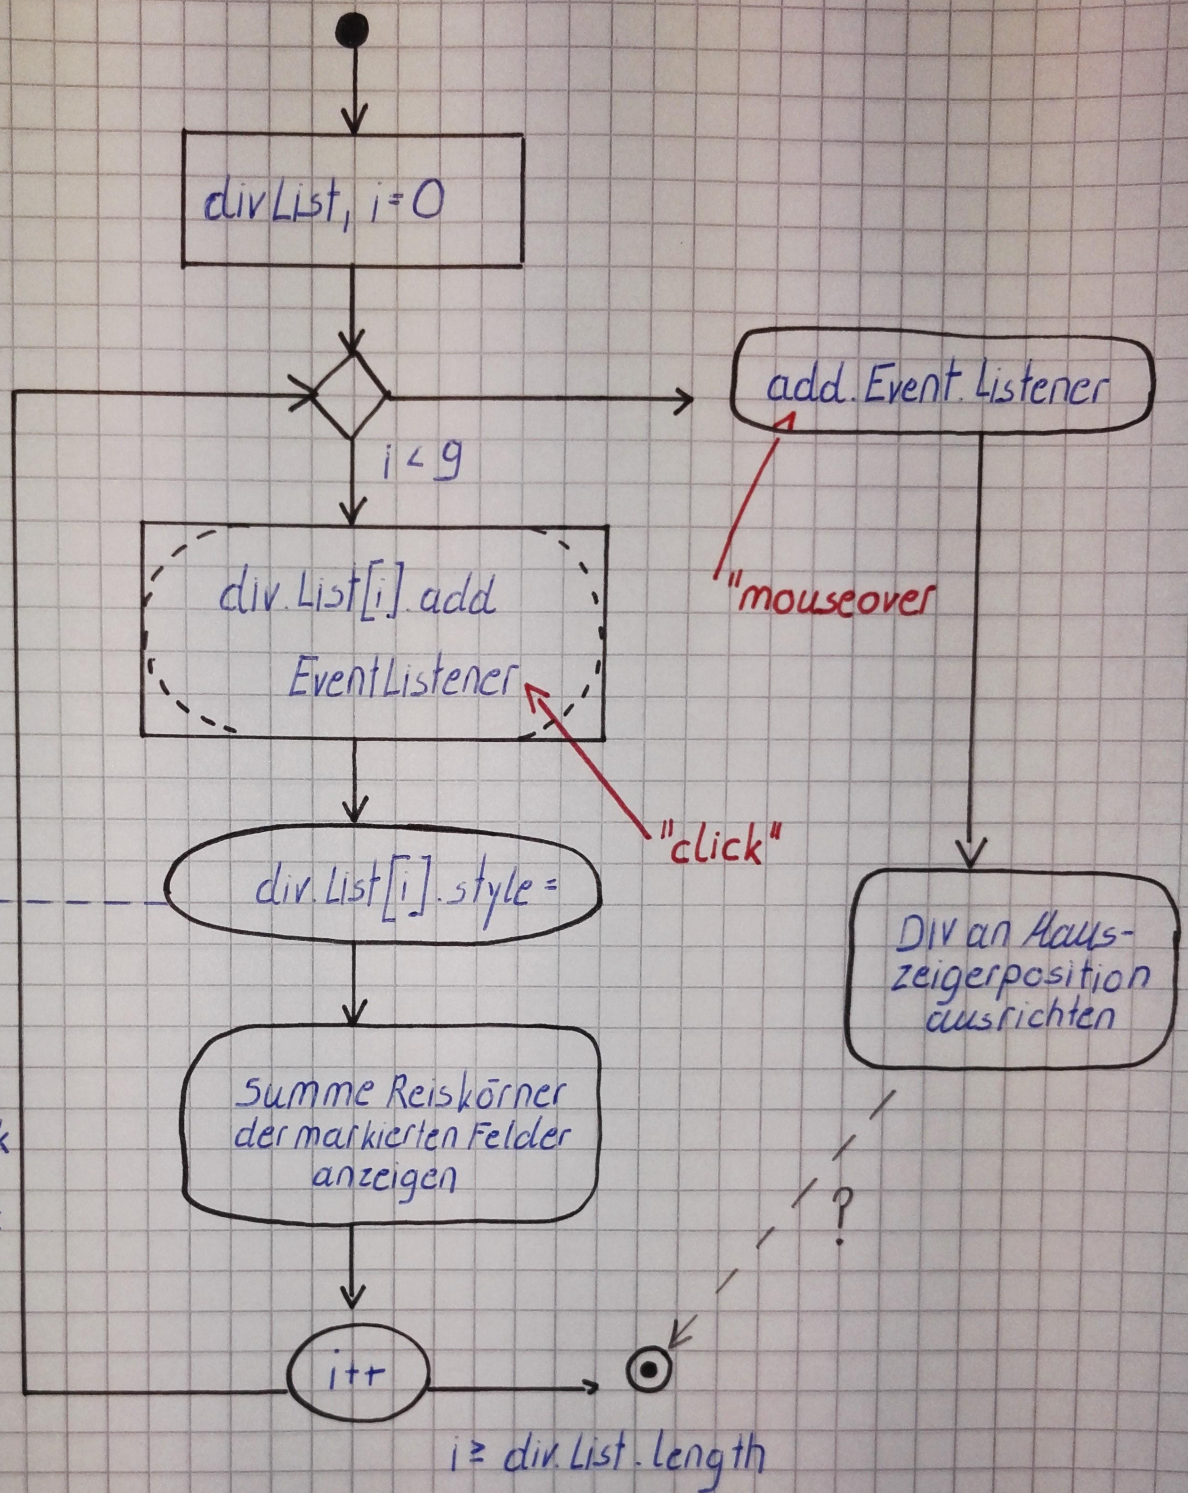 divList, i=0
add.Event.Listener
i < 9
div.List[i].add
EventListener
"mouseover
"click"
div.List[i].style =
Div an Maus-
zeigerposition
ausrichten
Summe Reiskörner
der markierten Felder
anzeigen
?
i++
i ≥ div.List.length